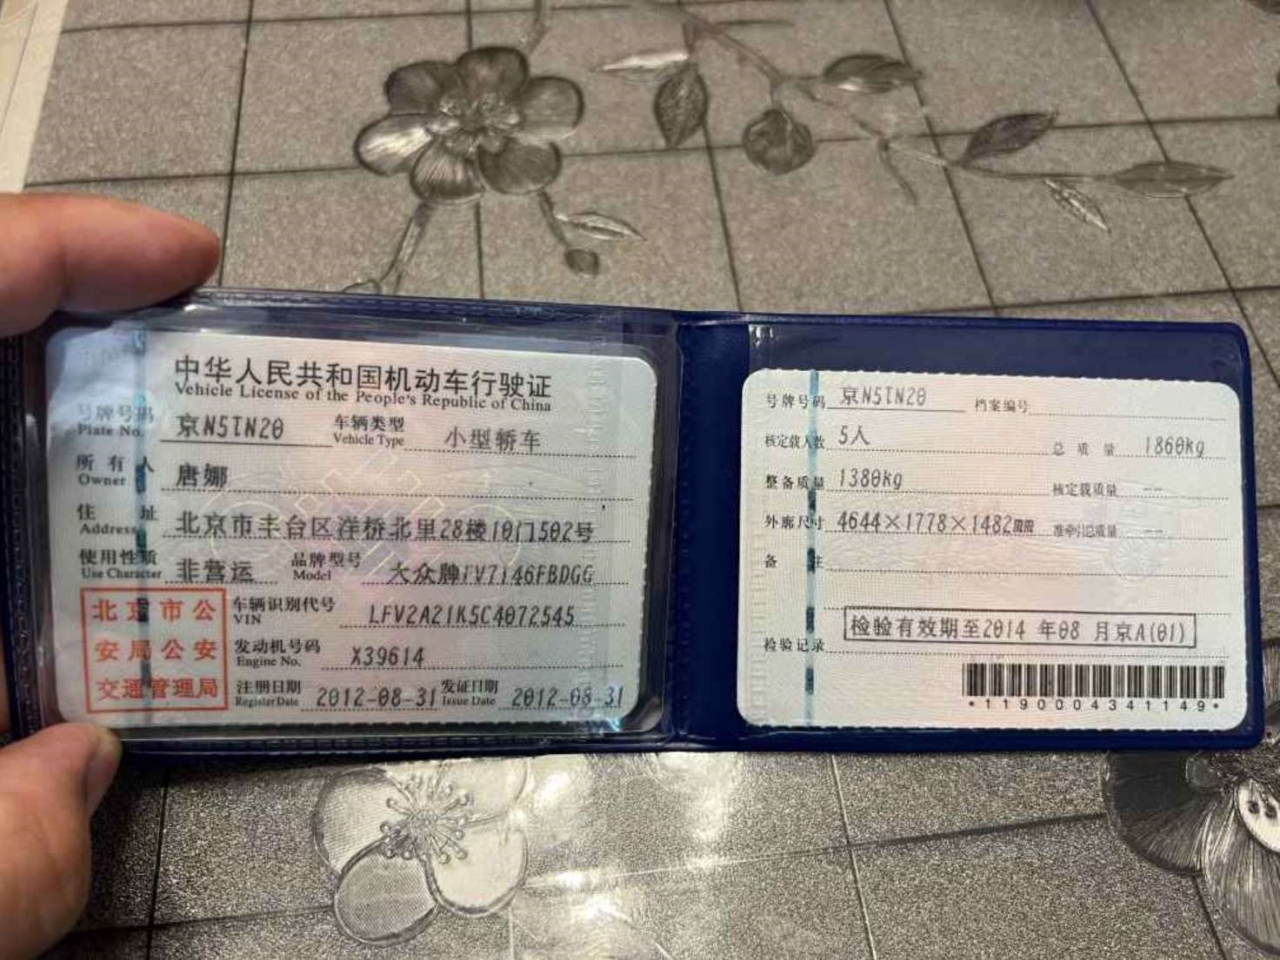 中华人民共和国机动车行驶证
Vehicle License of the People's Republic of China
号牌号码 京N5TN20 车辆类型 小型轿车
Plate No. Vehicle Type
所有人 唐娜
Owner
住址 北京市丰台区洋桥北里28楼10门502号
Address
使用性质 非营运 品牌型号 大众牌FV7146FBDGG
Use Character Model
北京市公安局公安交通管理局
车辆识别代号 LFV2A21K5C4072545
VIN
发动机号码 X39614
Engine No.
注册日期 2012-08-31 发证日期 2012-08-31
Register Date Issue Date
号牌号码 京N5TN20 档案编号
核定载人数 5人 总质量 1860kg
整备质量 1380kg 核定载质量 --
外廓尺寸 4644×1778×1482mm 准牵引总质量 --
备注
检验记录 检验有效期至2014年08月京A(01)
*1190004341149*